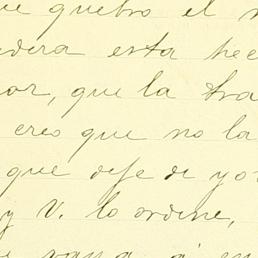 que quebro el
dera esta hec
or, que la tra
creo que no la
que deje de yo
y V. lo ordine,
vaya á en